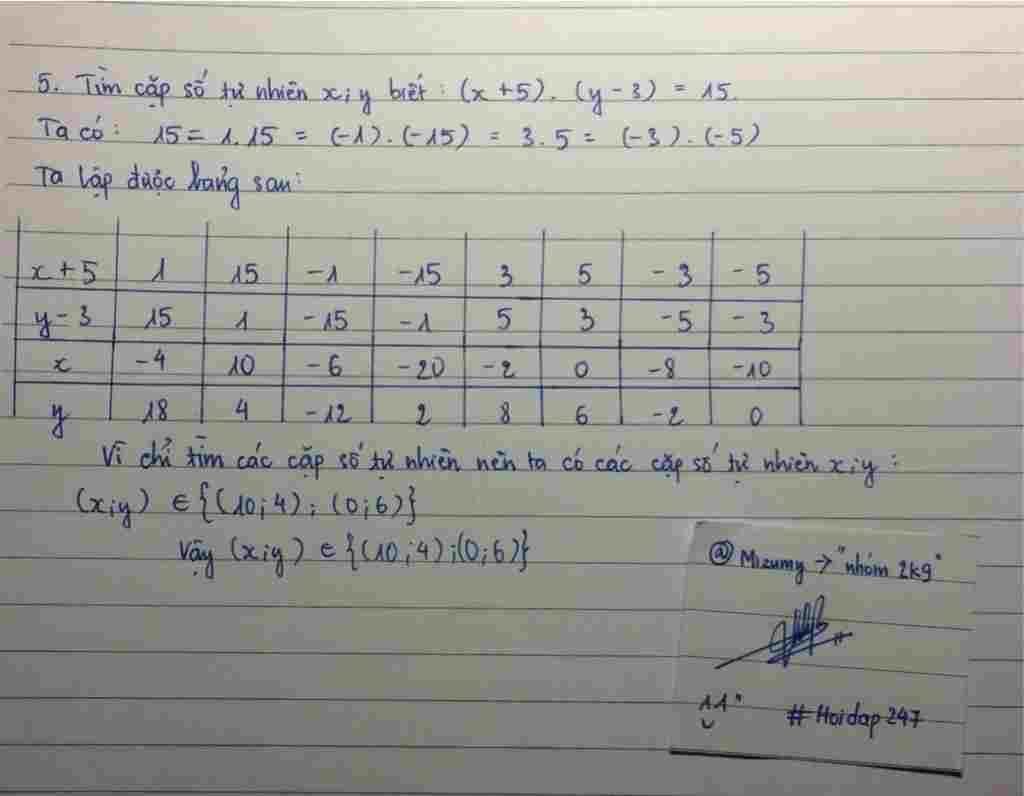 5. Tìm cặp số tự nhiên x;y biết: (x+5).(y-3) = 15.
Ta có: 15 = 1.15 = (-1).(-15) = 3.5 = (-3).(-5)
Ta lập được bảng sau:
x+5 1 15 -1 -15 3 5 -3 -5
y-3 15 1 -15 -1 5 3 -5 -3
x -4 10 -6 -20 -2 0 -8 -10
y 18 4 -12 2 8 6 -2 0
Vì chỉ tìm các cặp số tự nhiên nên ta có các cặp số tự nhiên x;y:
(x;y) ∈ {(10;4); (0;6)}
Vậy (x;y) ∈ {(10;4);(0;6)}
@ Mizumy → "nhóm 2k9"
# Hoidap247